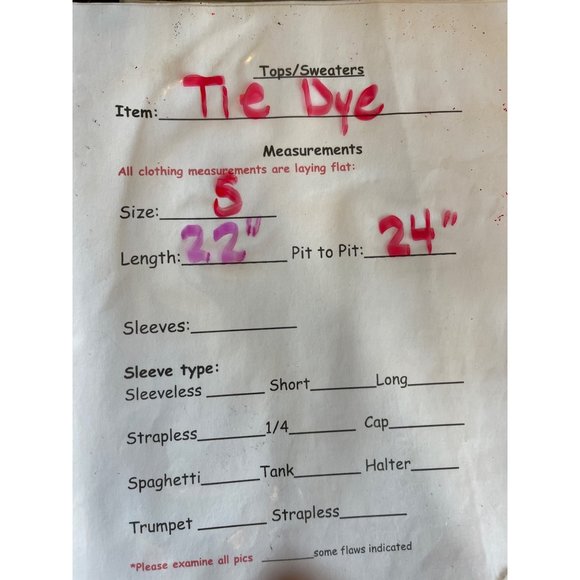 Tops/Sweaters
Item: Tie Dye
Measurements
All clothing measurements are laying flat:
Size: S
Length: 22" Pit to Pit: 24"
Sleeves:
Sleeve type:
Sleeveless Short Long
Strapless 1/4 Cap
Spaghetti Tank Halter
Trumpet Strapless
*Please examine all pics some flaws indicated